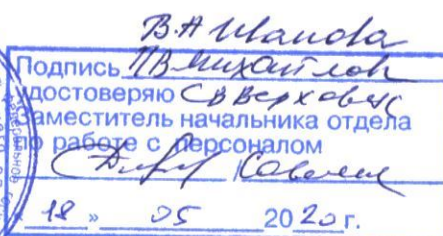 В.А Иванова
Подпись П.В Михайлов
удостоверяю С В Верховец
Заместитель начальника отдела
по работе с персоналом
« 18 » 05 2020 г.